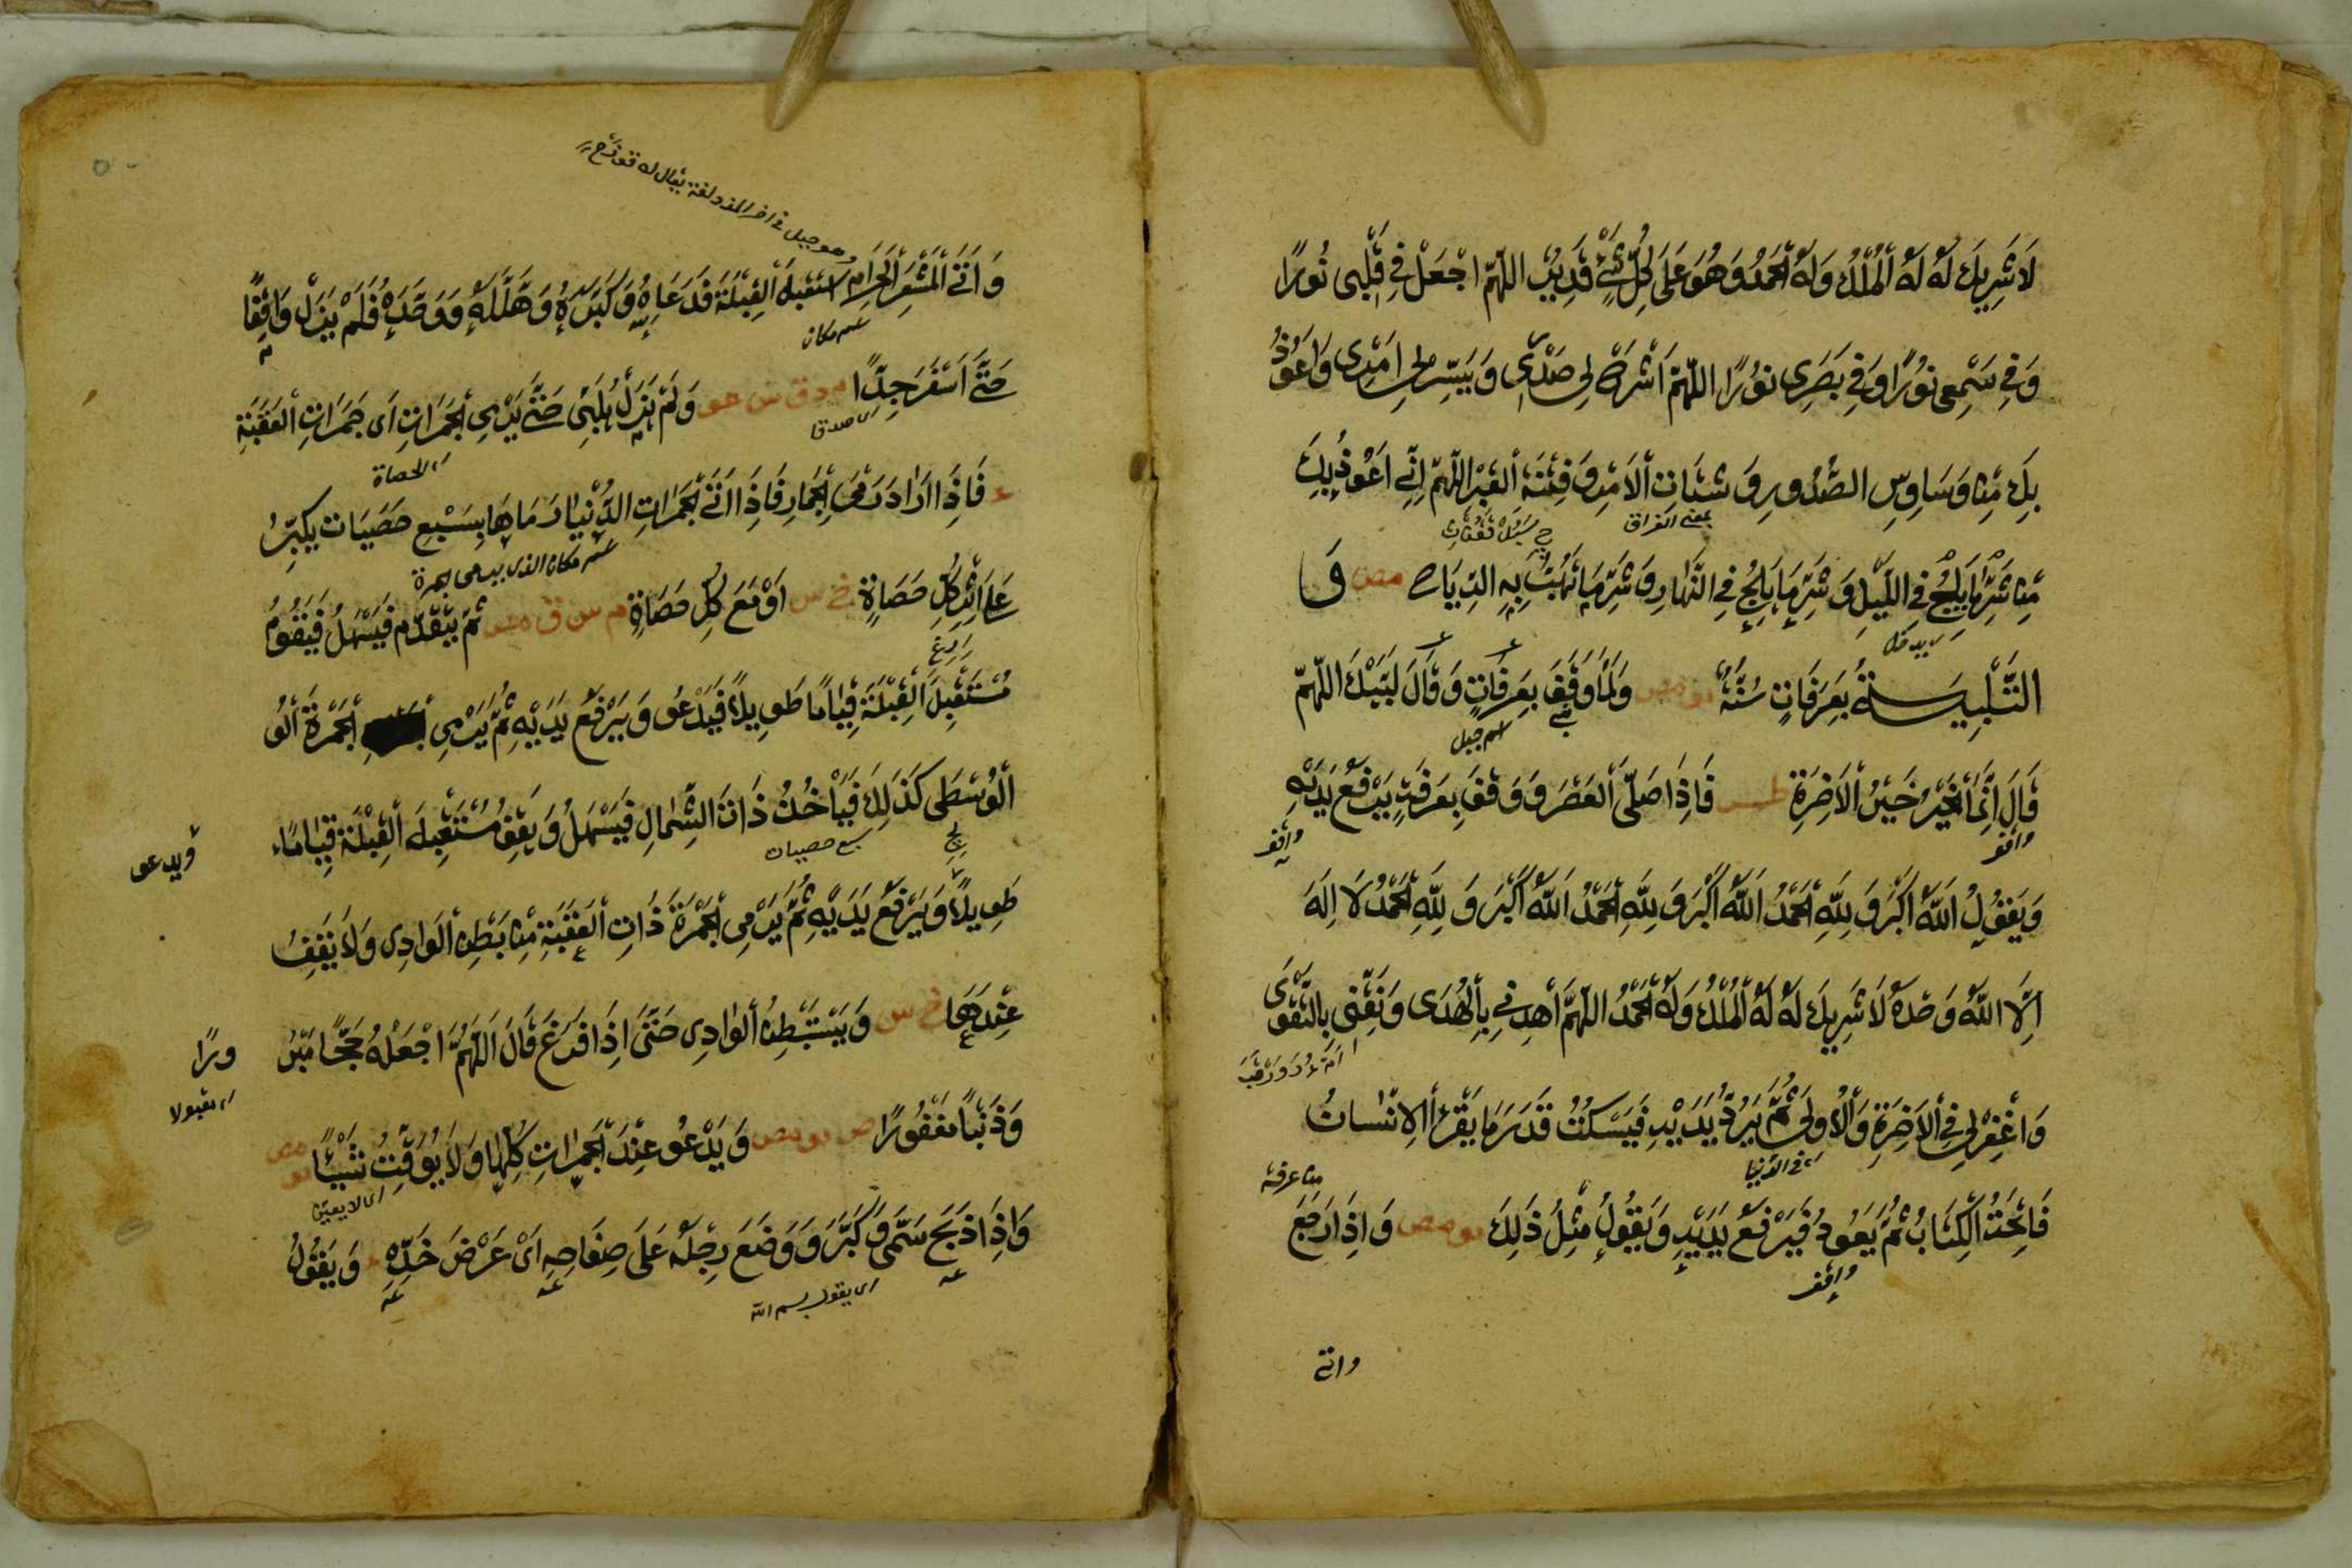 لَا شَرِيكَ لَهُ لَهُ الْمُلْكُ وَلَهُ الْحَمْدُ وَهُوَ عَلَى كُلِّ شَيْءٍ قَدِيرٌ اللّهُمَّ اجْعَلْ فِي قَلْبِي نُورًا
وَفِي سَمْعِي نُورًا وَفِي بَصَرِي نُورًا اللّهُمَّ اشْرَحْ لِي صَدْرِي وَيَسِّرْ لِي اَمْرِي وَاَعُوذُ
بِكَ مِنْ وَسَاوِسِ الصُّدُورِ وَشَتَاتِ الْاَمْرِ وَفِتْنَةِ الْقَبْرِ اللّهُمَّ اِنِّي اَعُوذُ بِكَ
بمعنى الفراق
مِنْ شَرِّ مَا يَلِجُ فِي اللَّيْلِ وَشَرِّ مَا يَلِجُ فِي النَّهَارِ وَشَرِّ مَا تَهُبُّ بِهِ الرِّيَاحُ مص وَ
اى يدخل
التَّلْبِيَةُ بِعَرَفَاتٍ سُنَّةٌ مو مص وَلَمَّا وَقَفَ بِعَرَفَاتٍ وَقَالَ لَبَّيْكَ اللّهُمَّ
اسم جبل
قَالَ اِنَّمَا الْخَيْرُ خَيْرُ الْاَخِرَةِ طس فَاِذَا صَلَّى الْعَصْرَ وَوَقَفَ بِعَرَفَةَ يَرْفَعُ يَدَيْهِ
واقف
وَيَقُولُ اَللّهُ اَكْبَرُ وَلِلّهِ الْحَمْدُ اَللّهُ اَكْبَرُ وَلِلّهِ الْحَمْدُ اَللّهُ اَكْبَرُ وَلِلّهِ الْحَمْدُ لَا اِلَهَ
اِلَّا اللّهُ وَحْدَهُ لَا شَرِيكَ لَهُ لَهُ الْمُلْكُ وَلَهُ الْحَمْدُ اللّهُمَّ اهْدِنِي بِالْهُدَى وَنَقِّنِي بِالتَّقْوَى
وَاغْفِرْ لِي فِي الْاَخِرَةِ وَالْاُولَى ثُمَّ يَرُدُّ يَدَيْهِ فَيَسْكُتُ قَدْرَ مَا يَقْرَأُ الْاِنْسَانُ
اى فى الدنيا
من عرفة
فَاتِحَةَ الْكِتَابِ ثُمَّ يَعُودُ فَيَرْفَعُ يَدَيْهِ وَيَقُولُ مِثْلَ ذَلِكَ مو مص وَاِذَا رَجَعَ
واقف
واتى
وهو جبل فى اخر المزدلفة يقال له قزح
وَاَتَى الْمَشْعَرَ الْحَرَامَ اسْتَقْبَلَ الْقِبْلَةَ فَدَعَا اللهَ وَكَبَّرَهُ وَهَلَّلَهُ وَوَحَّدَهُ فَلَمْ يَزَلْ وَاقِفًا
اسم مكان
حَتَّى اَسْفَرَ جِدًّا م د ق س عو وَلَمْ يَزَلْ يُلَبِّي حَتَّى يَرْمِيَ الْجَمَرَاتِ اَى جَمَرَاتِ الْعَقَبَةِ
اى صدقا
اى الحصاة
ع فَاِذَا اَرَادَ رَمْيَ الْجِمَارِ فَاِذَا اَتَى الْجَمَرَاتِ الدُّنْيَا رَمَاهَا بِسَبْعِ حَصَيَاتٍ يُكَبِّرُ
اسم مكان الذى يسمى جمرة
عَلَى اَثَرِ كُلِّ حَصَاةٍ خ س اَوْ مَعَ كُلِّ حَصَاةٍ م س ق مص ثُمَّ يَتَقَدَّمُ فَيُسْهِلُ فَيَقُومُ
مُسْتَقْبِلَ الْقِبْلَةِ قِيَامًا طَوِيلًا فَيَدْعُو وَيَرْفَعُ يَدَيْهِ ثُمَّ يَرْمِي الْجَمْرَةَ الْوُ
الْوُسْطَى كَذَلِكَ فَيَأْخُذُ ذَاتَ الشِّمَالِ فَيُسْهِلُ وَيَقِفُ مُسْتَقْبِلَ الْقِبْلَةِ قِيَامًا
ويدعو
سبع حصيات
طَوِيلًا وَيَرْفَعُ يَدَيْهِ ثُمَّ يَرْمِي الْجَمْرَةَ ذَاتَ الْعَقَبَةِ مِنْ بَطْنِ الْوَادِي وَلَا يَقِفُ
عِنْدَهَا خ س وَيَسْتَبْطِنُ الْوَادِي حَتَّى اِذَا فَرَغَ قَالَ اَللّهُمَّ اجْعَلْهُ حَجًّا مَبْرُ
ورًا
اى مقبولا
وَذَنْبًا مَغْفُورًا مص مو مص وَيَدْعُو عِنْدَ الْجَمَرَاتِ كُلِّهَا وَلَا يُوَقِّتُ شَيْئًا مو مص
اى لا يعين
وَاِذَا ذَبَحَ سَمَّى وَكَبَّرَ وَوَضَعَ رِجْلَهُ عَلَى صِفَاحِهِ اَىْ عَرْضَ خَدِّهِ ع وَيَقُولُ
اى يقول بسم الله